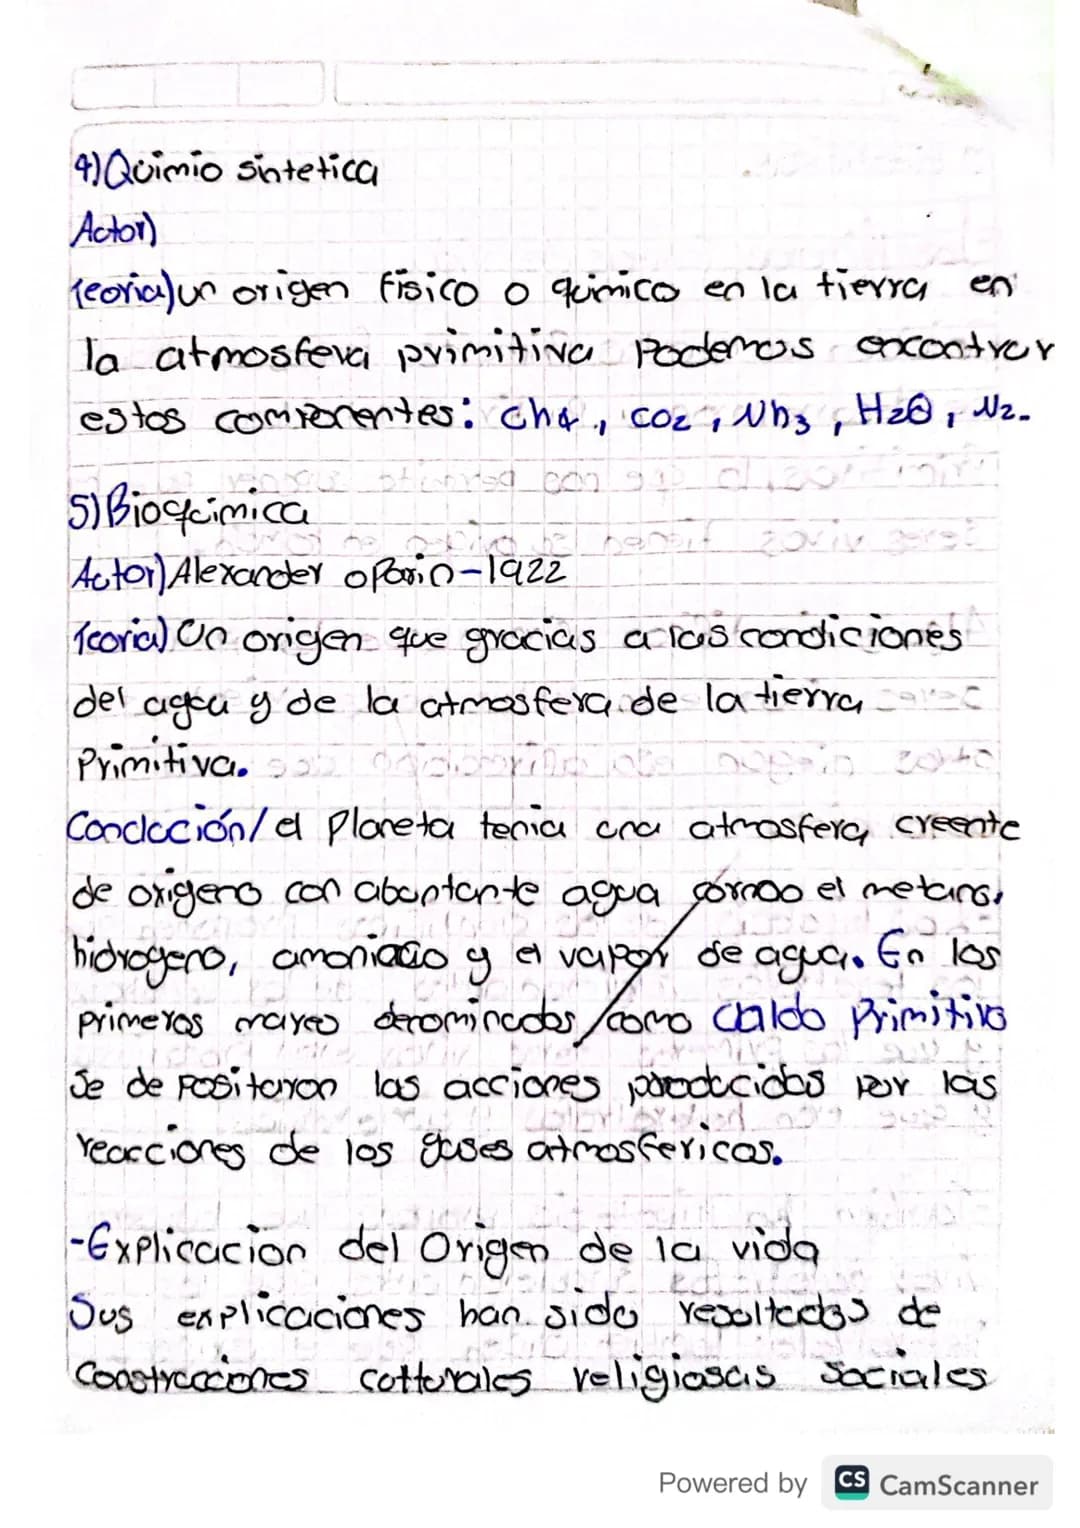 4) Quimio sintetica
Actor)
teoria) un origen fisico o quimico en la tierra en
la atmosfera primitiva podemos encontrar
estos componentes: Ch4, CO2, Nh3, H2O, N2.
5) Bioquimica
Actor) Alexander oparin-1922
teoria) Un origen que gracias a las condiciones
del agua y de la atmosfera de la tierra
Primitiva.
Conclución/ el Planeta tenia una atmosfera creente
de oxigeno con abuntante agua como el metano,
hidrogeno, amoniaco y el vapor de agua. En los
primeros mares denominados/como Caldo Primitivo
Se de positaron las acciones producidas por las
reacciones de los gases atmosfericos.
-Explicacion del Origen de la vida
Sus explicaciones han sido resultados de
Construcciones culturales religiosas Sociales
Powered by CS CamScanner